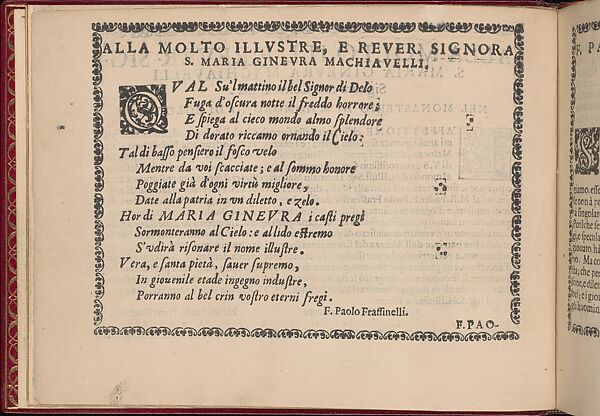 ALLA MOLTO ILLVSTRE, E REVER. SIGNORA
S. MARIA GINEVRA MACHIAVELLI.
QVAL Su'l mattino il bel Signor di Delo
Fuga d'oscura notte il freddo horrore;
E spiega al cieco mondo almo splendore
Di dorato riccamo ornando il Cielo;
Tal di basso pensiero il fosco velo
Mentre da voi scacciate; e al sommo honore
Poggiate già d'ogni virtù migliore,
Date alla patria in vn diletto, e zelo.
Hor di MARIA GINEVRA i casti pregi
Sormonteranno al Cielo: e al lido estremo
S'vdirà risonare il nome illustre.
Vera, e santa pietà, sauer supremo,
In giouenile etade ingegno industre,
Porranno al bel crin vostro eterni fregi.
F. Paolo Fraffinelli.
F. PAO-
F. PA